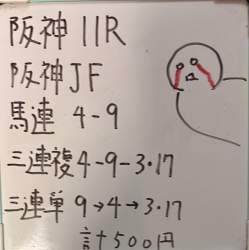 阪神 11R
阪神JF
馬連 4-9
三連複4-9-3・17
三連単 9→4→3・17
計500円